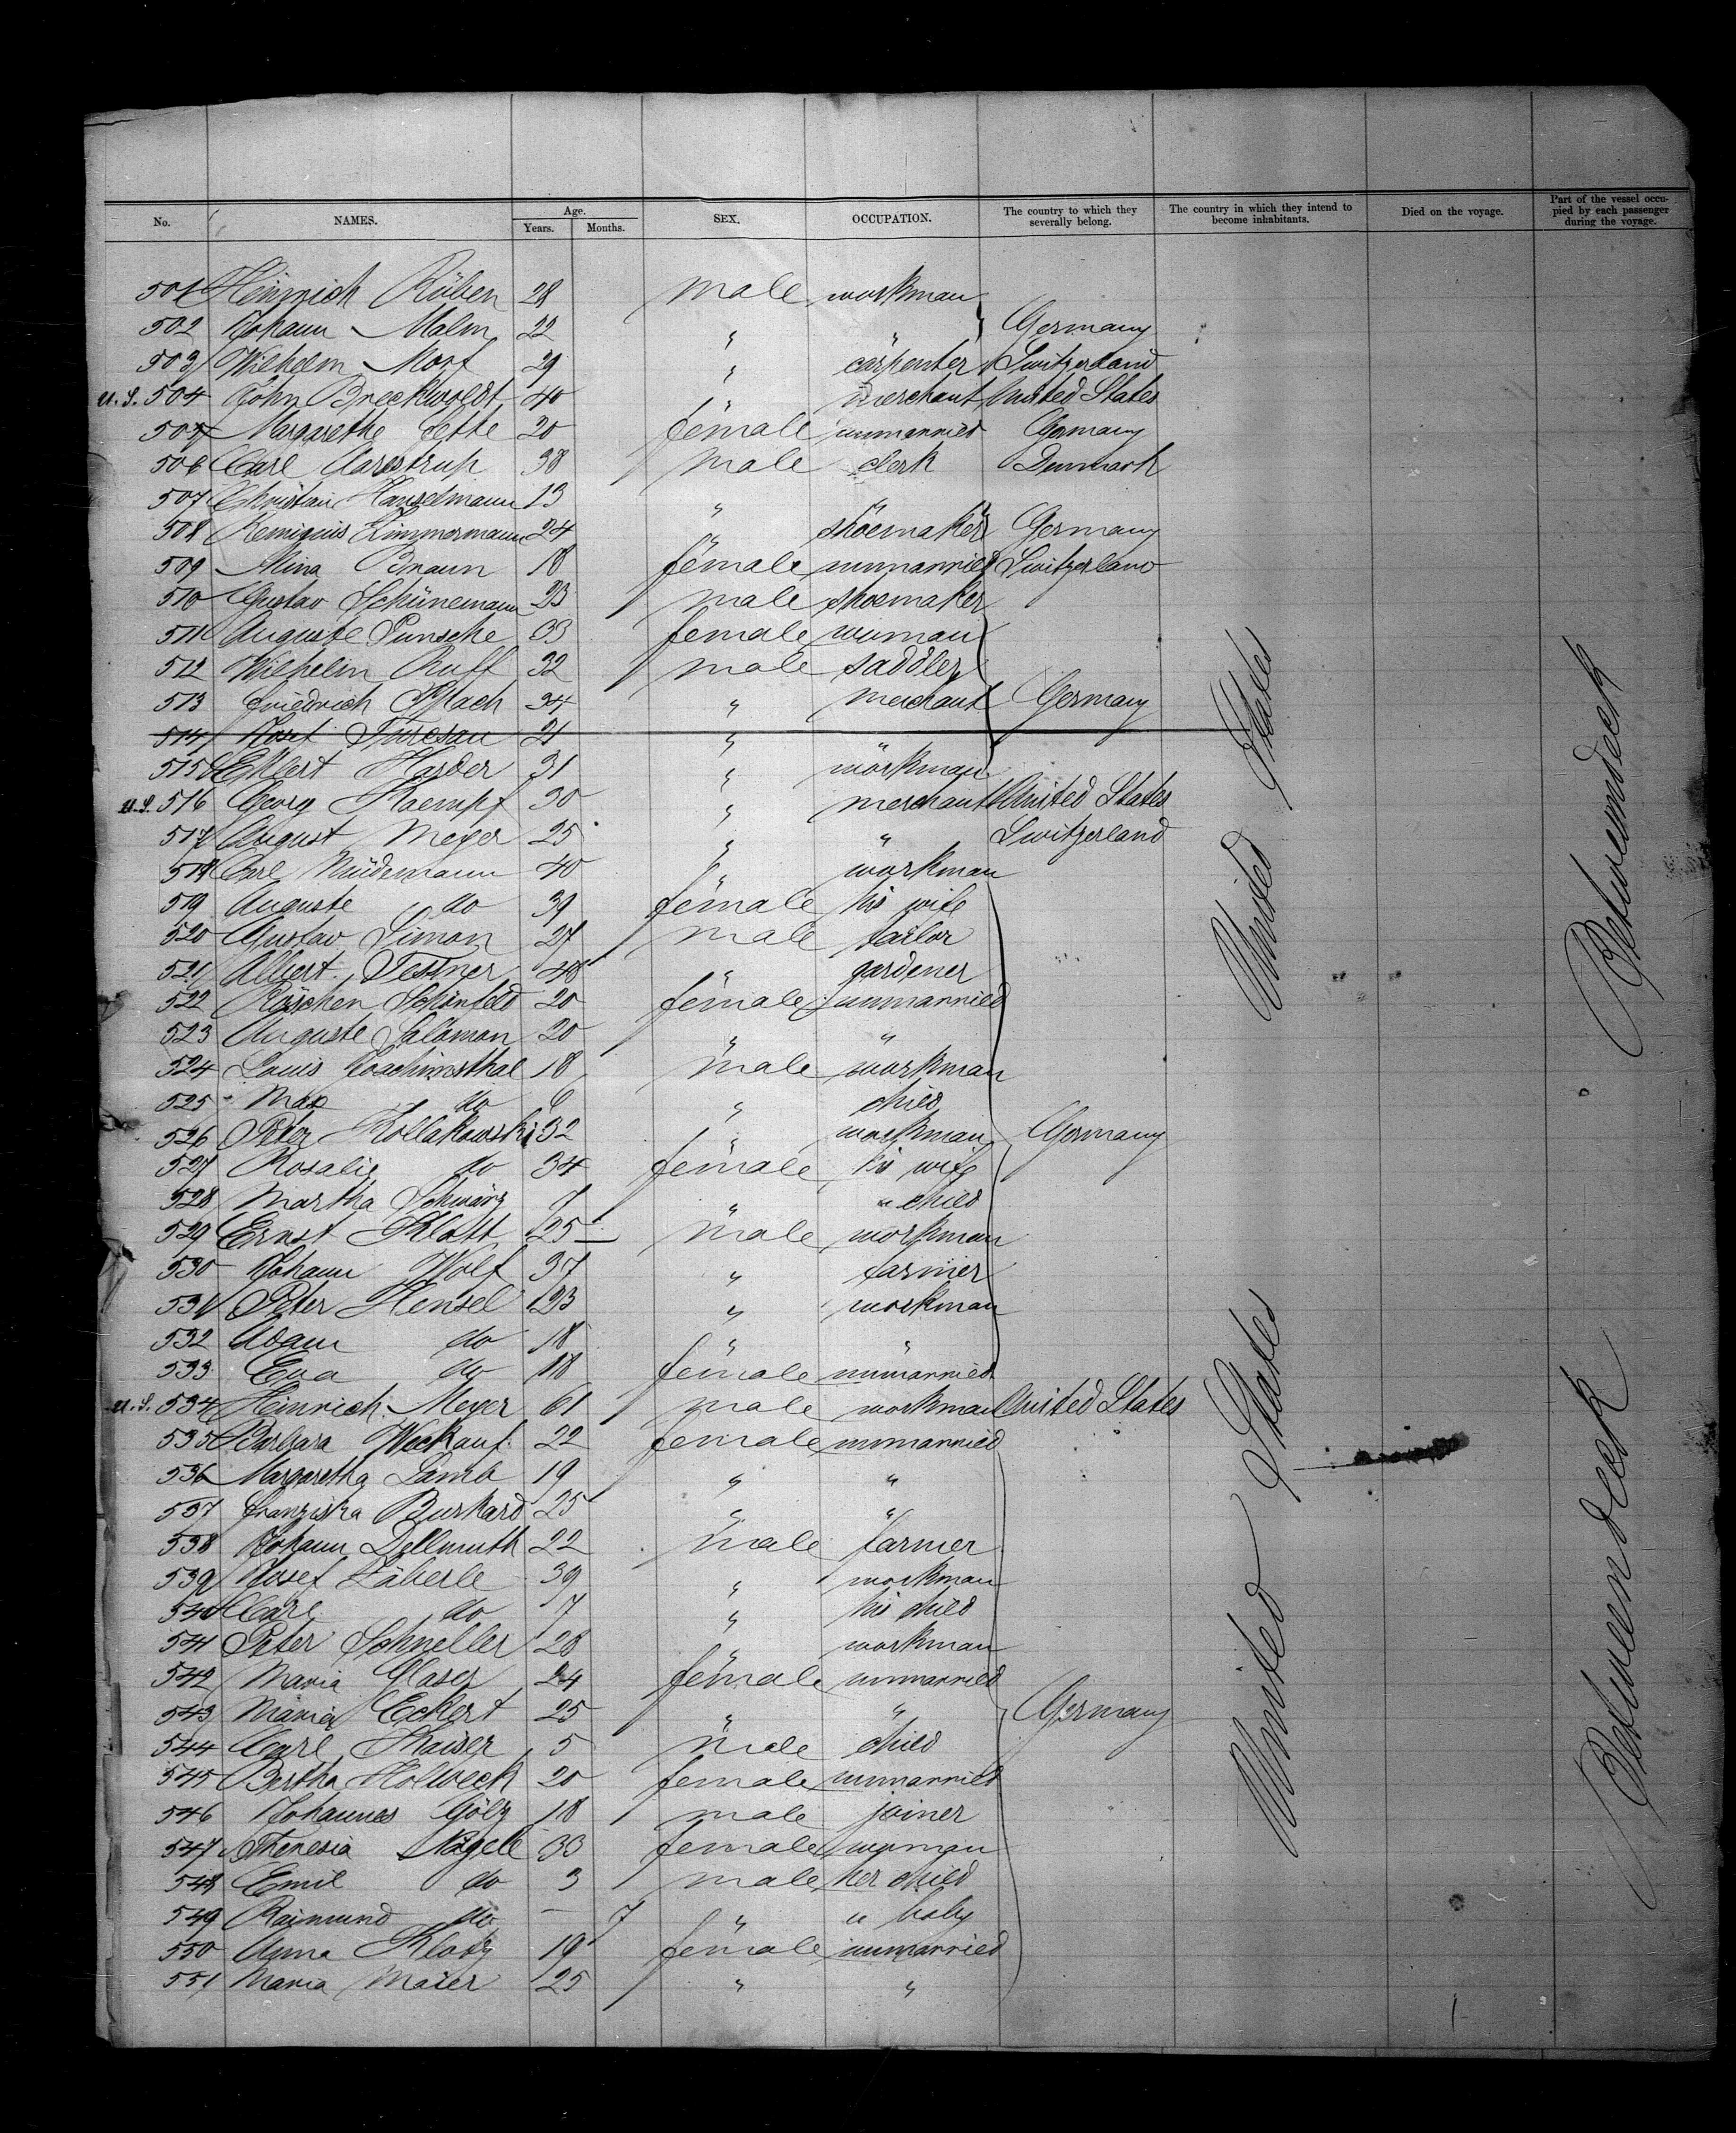 No. NAMES. Age. Years. Months. SEX. OCCUPATION. The country to which they severally belong. The country in which they intend to become inhabitants. Died on the voyage. Part of the vessel occupied by each passenger during the voyage.
501 Hinrich Rüben 28 male workman
502 Johann Malm 22 " " Germany
503 Wilhelm Morf 29 " carpenter Switzerland
U.S. 504 John Breckwoldt 40 " merchant United States
505 Margarethe Jette 20 female unmarried Germany
506 Carl Aarestrup 38 male clerk Denmark
507 Christian Hanselmann 13 " "
508 Remigius Zimmermann 24 " shoemaker Germany
509 Mina Braun 18 female unmarried Switzerland
510 Gustav Schünemann 23 male shoemaker
511 Auguste Punsche 33 female woman
512 Wilhelm Ruff 32 male saddler
513 Friedrich Flach 34 " merchant Germany
514 Josef 21 "
515 Ehlert Harder 31 " workman
U.S. 516 Georg Kaempf 30 " merchant United States
517 August Meyer 25 " " Switzerland
518 Carl Nüdemann 40 " workman
519 Auguste do 39 female his wife
520 Gustav Simon 27 male tailor
521 Albert Testner 48 " gardener
522 Röschen Schönfeld 20 female unmarried
523 Auguste Salomon 20 " "
524 Louis Joachimsthal 18 male workman
525 Max do 6 " child
526 Peter Kollakowski 32 " workman Germany
527 Rosalie do 34 female his wife
528 Martha Schwarz 7 " " child
529 Ernst Klatt 25 male workman
530 Johann Wolf 37 " farmer
531 Peter Hensel 23 " workman
532 Adam do 18 " "
533 Eva do 18 female unmarried
U.S. 534 Hinrich Meyer 61 male workman United States
535 Barbara Weckauf 22 female unmarried
536 Margaretha Lamb 19 " "
537 Franziska Burkard 25 " "
538 Johann Dellmuth 22 male farmer
539 Josef Läberle 39 " workman
540 Carl do 7 " his child
541 Peter Schneller 28 " workman
542 Maria Glaser 24 female unmarried
543 Maria Eckert 25 " " Germany
544 Carl Kaiser 5 male child
545 Bertha Holweck 20 female unmarried
546 Johannes Gölz 18 male joiner
547 Theresia Nägele 33 female woman
548 Emil do 3 male her child
549 Raimund do — 7 " " baby
550 Anna Klotz 19 female unmarried
551 Maria Maier 25 " "
United States
United States
Betweendeck
Betweendeck